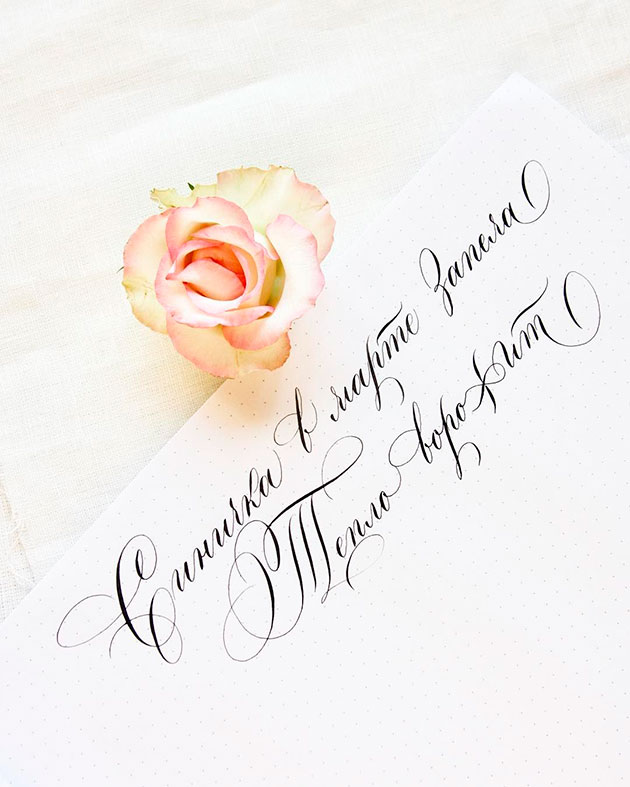 Синичка в марте Запела
Тепло ворожит